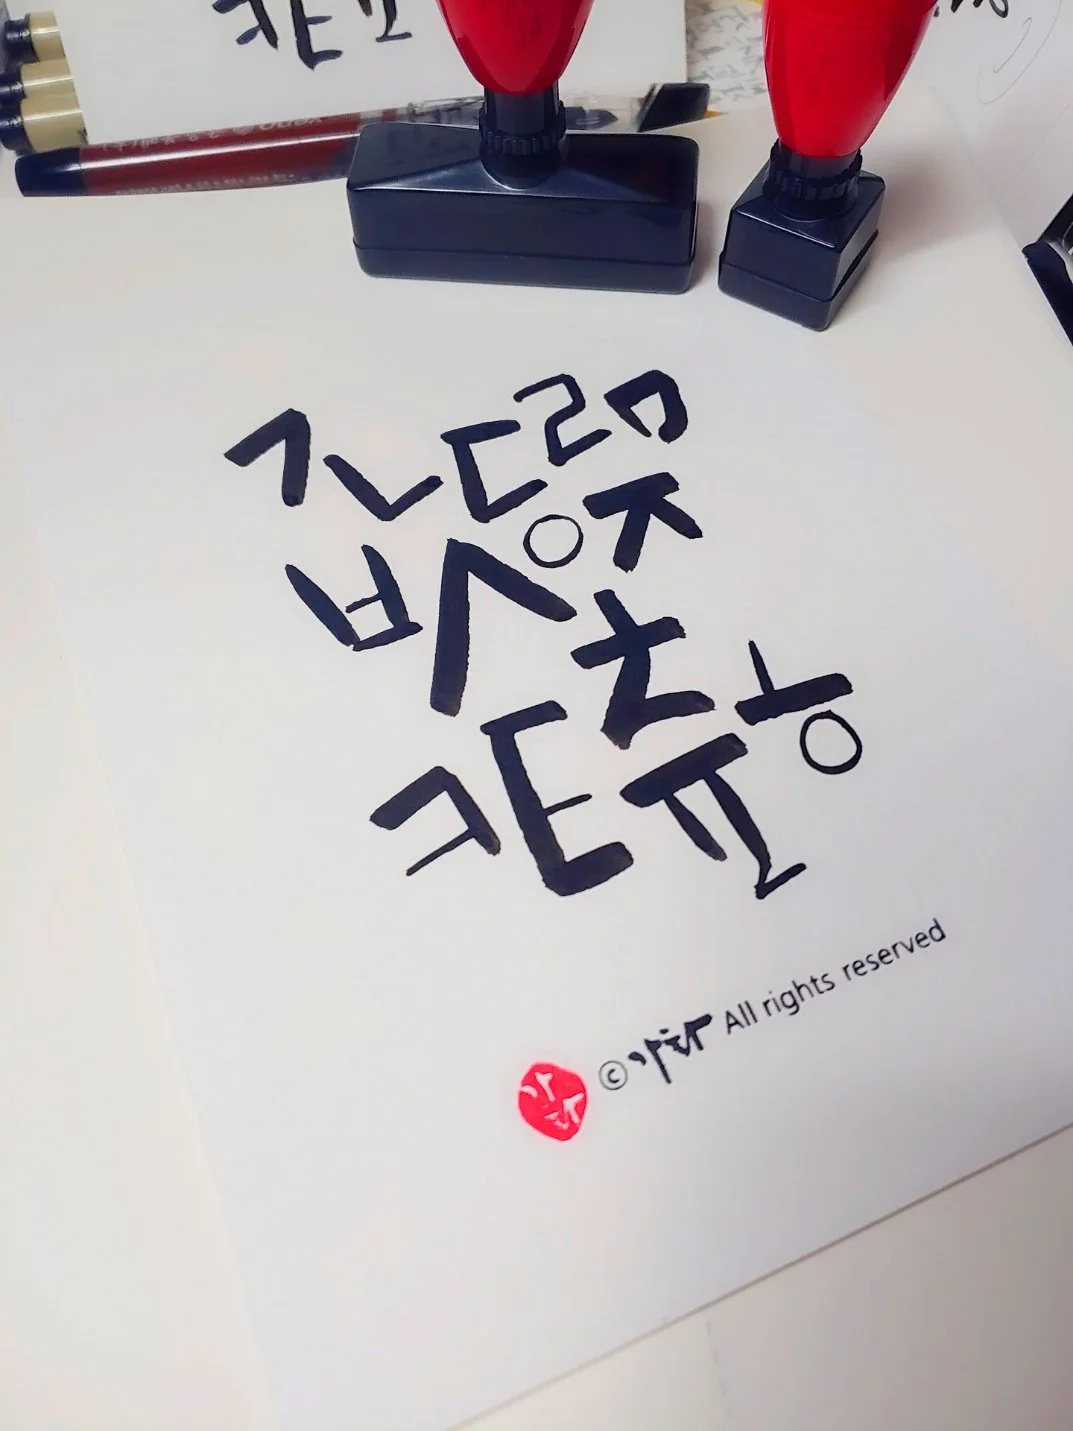 ㅋㅌㅍ
ㄱㄴㄷㄹㅁ
ㅂㅅㅇㅈㅊ
ㅋㅌㅍㅎ
© All rights reserved